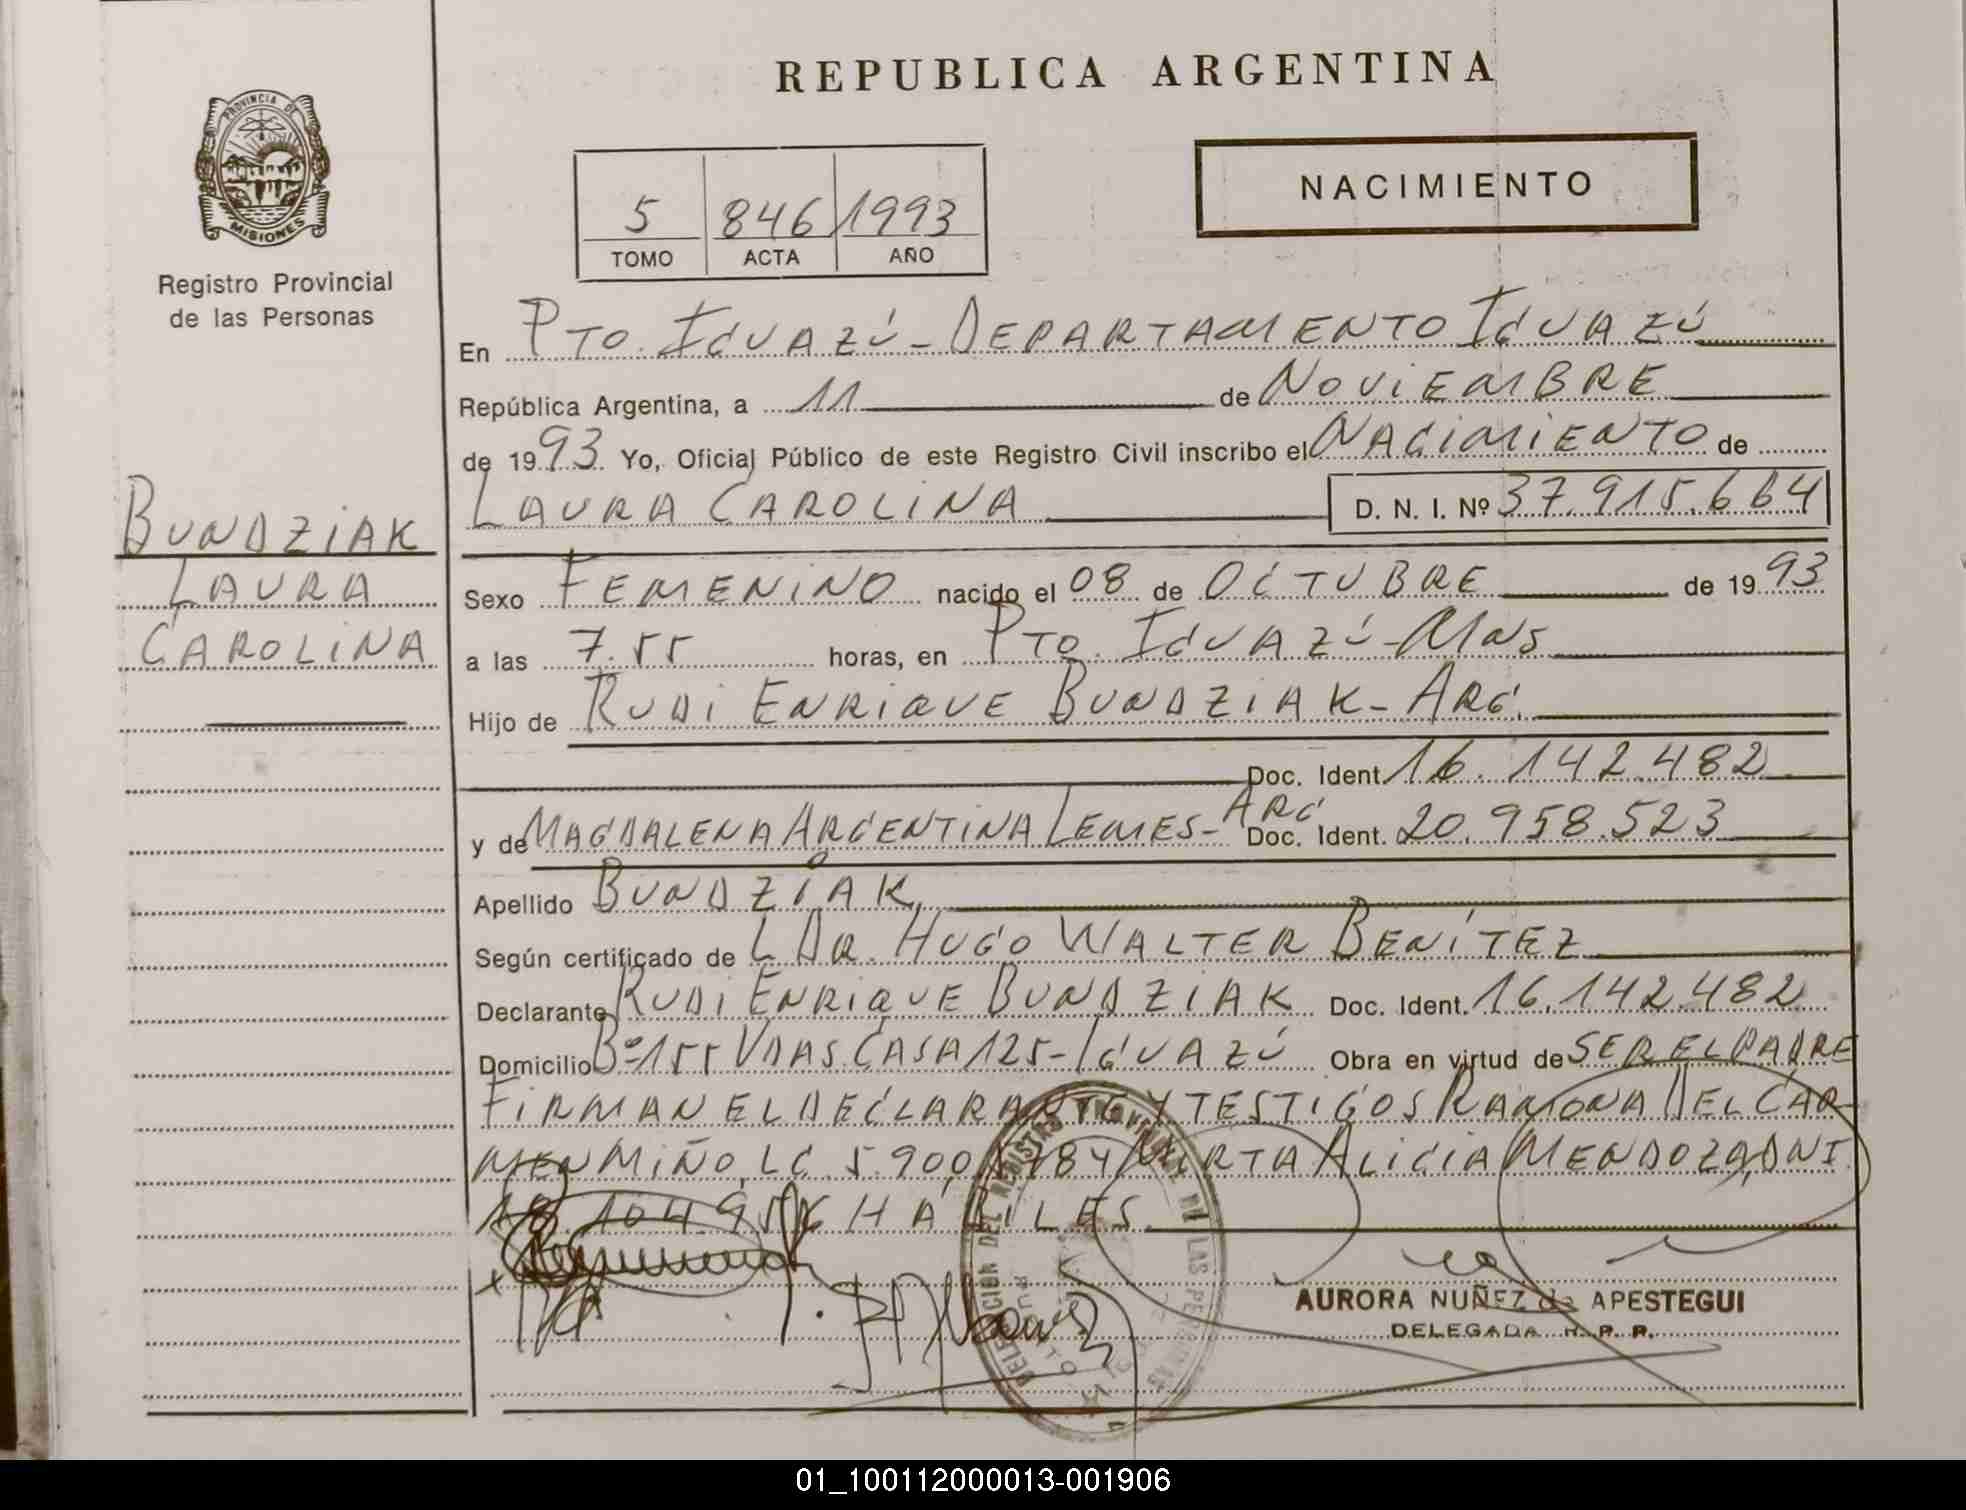 REPUBLICA ARGENTINA
PROVINCIA DE
MISIONES
Registro Provincial
de las Personas
5 846 1993
TOMO ACTA AÑO
NACIMIENTO
En PTO. IGUAZÚ - DEPARTAMENTO IGUAZÚ
República Argentina, a 11 de NOVIEMBRE
de 1993 Yo, Oficial Público de este Registro Civil inscribo el NACIMIENTO de
LAURA CAROLINA D. N. I. Nº 37.915.664
BUNDZIAK
LAURA
CAROLINA
Sexo FEMENINO nacido el 08 de OCTUBRE de 1993
a las 7.55 horas, en PTO. IGUAZÚ - MNS
Hijo de RUDI ENRIQUE BUNDZIAK - ARG.
Doc. Ident. 16.142.482
y de MAGDALENA ARGENTINA LEMES - ARG Doc. Ident. 20.958.523
Apellido BUNDZIAK
Según certificado de DR. HUGO WALTER BENÍTEZ
Declarante RUDI ENRIQUE BUNDZIAK Doc. Ident. 16.142.482
Domicilio Bº 155 VDAS. CASA 125 - IGUAZÚ Obra en virtud de SER EL PADRE
FIRMAN EL DECLARANTE Y TESTIGOS RAMONA DEL CAR-
MEN MIÑO, LC. 5.900.784 MIRTA ALICIA MENDOZA, DNI
HABILES
AURORA NUÑEZ de APESTEGUI
DELEGADA R. P. P.
01_100112000013-001906